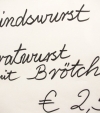 indswurst
ratwurst
it Brötch
€ 2,